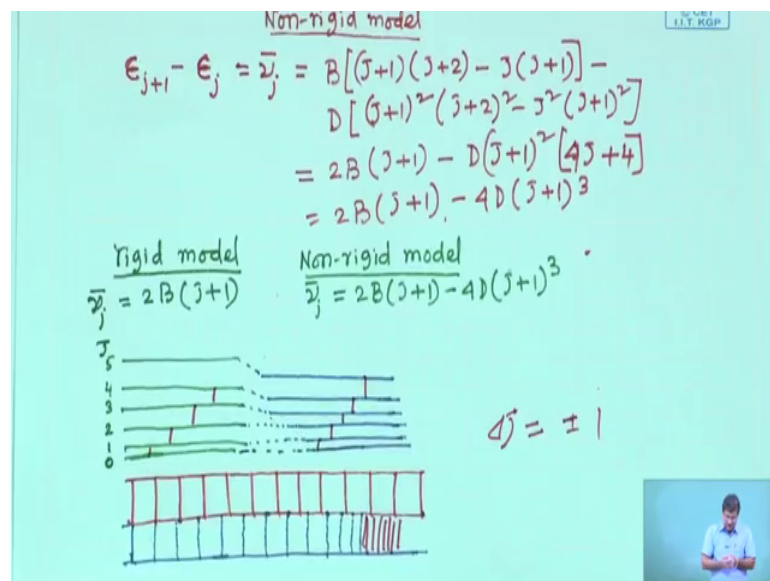 Non-rigid model
© CET
I.I.T. KGP
ϵ_{j+1} - ϵ_j = ν̄_j = B[(J+1)(J+2) - J(J+1)] -
D[(J+1)²(J+2)² - J²(J+1)²]
= 2B(J+1) - D(J+1)²[4J+4]
= 2B(J+1) - 4D(J+1)³
rigid model
ν̄_j = 2B(J+1)
Non-rigid model
ν̄_j = 2B(J+1) - 4D(J+1)³
J
5
4
3
2
1
0
ΔJ = ±1